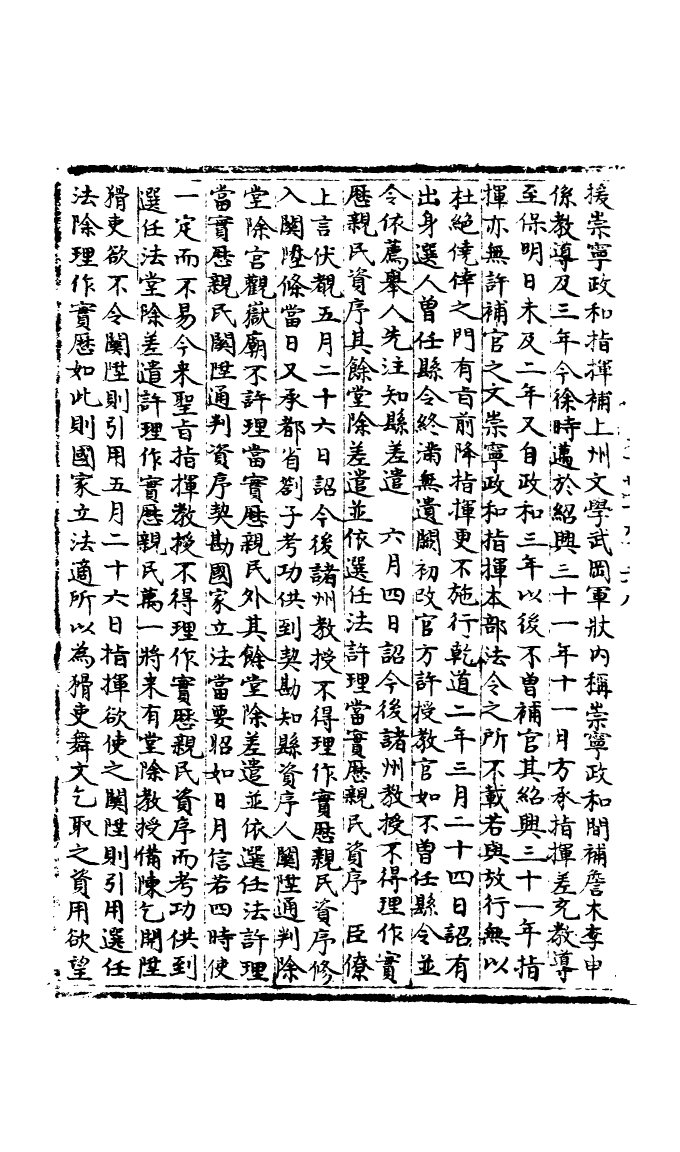 援崇寧政和指揮補上州文學武岡軍狀内稱崇寧政和間補詹木李申
係教導及三年今徐時邁於紹興三十一年十一月方承指揮差充教導
至保明日未及二年又自政和三年以後不曽補官其紹興三十一年指
揮亦無許補官之文崇寧政和指揮本部法令之所不載若與放行無以
杜絶僥倖之門有㫖前降指揮更不施行乾道二年三月二十四日詔有
出身選人曽任縣令終滿無遺闕初改官方許授教官如不曽任縣令並
令依薦舉人先注知縣差遣 六月四日詔今後諸州教授不得理作實
歷親民資序其餘堂除差遣並依選任法許理當實歷親民資序 臣僚
上言伏覩五月二十六日詔今後諸州教授不得理作實歷親民資序修
入關陞條當日又承都省劄子考功供到契勘知縣資序人關陞通判除
堂除宫觀嶽廟不許理當實歷親民外其餘堂除差遣並依選任法許理
當實歷親民關陞通判資序契勘國家立法當要昭如日月信若四時使
一定而不易今來聖㫖指揮教授不得理作實歷親民資序而考功供到
選任法堂除差遣許理作實歷親民萬一將來有堂除教授備陳乞關陞
猾吏欲不令關陞則引用五月二十六日指揮欲使之關陞則引用選任
法除理作實歷如此則國家立法適所以為猾吏舞文乞取之資用欲望